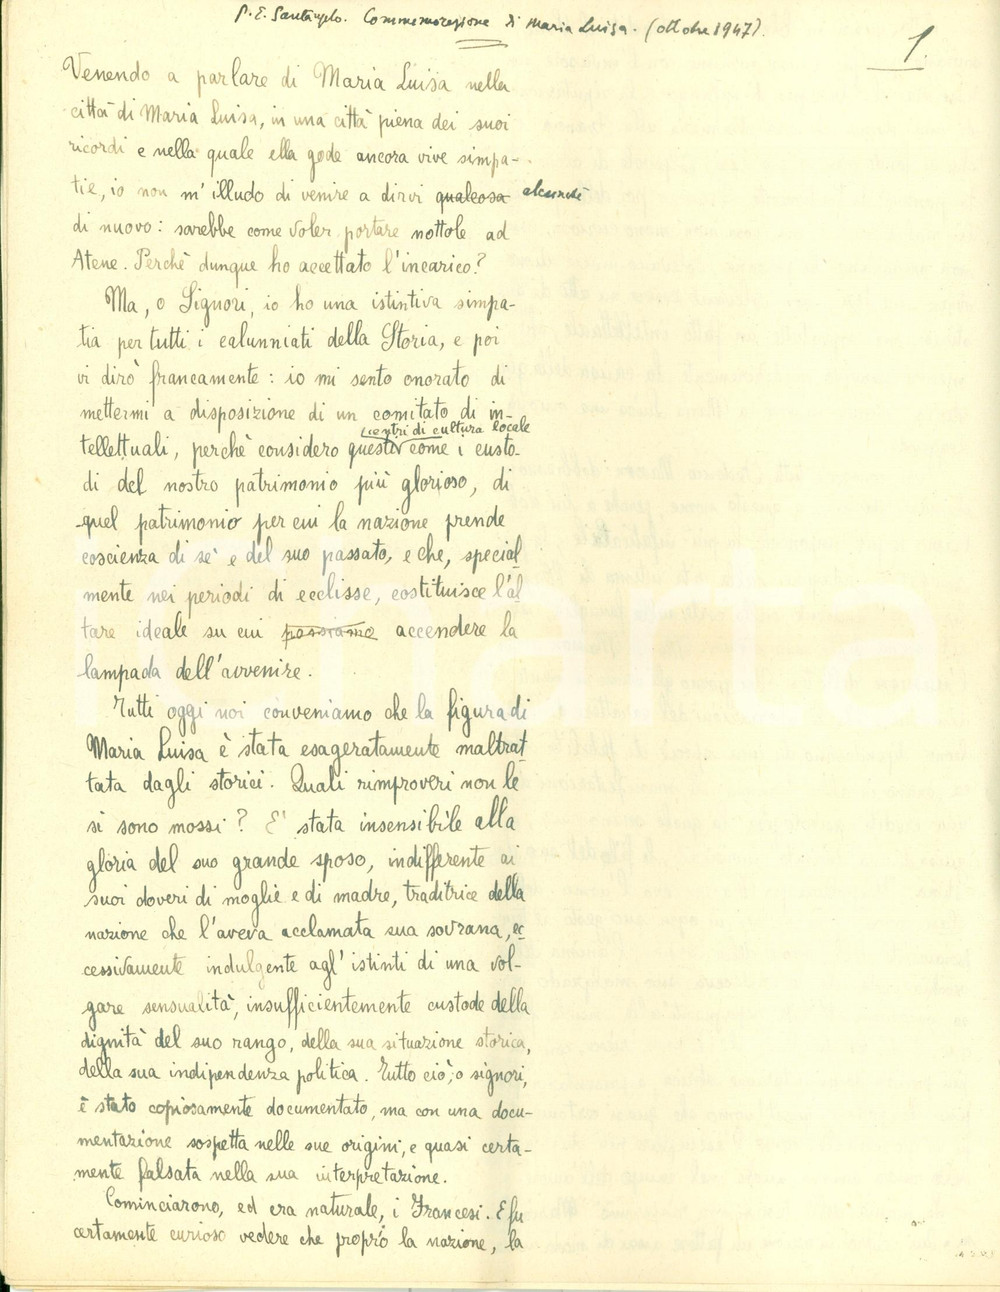 P. E. Santangelo. Commemorazione di Maria Luisa. (ottobre 1947).
1.
Venendo a parlare di Maria Luisa nella
città di Maria Luisa, in una città piena dei suoi
ricordi e nella quale ella gode ancora vive simpa-
tie, io non m'illudo di venire a dirvi qualcosa alcunché
di nuovo: sarebbe come voler portare nottole ad
Atene. Perchè dunque ho accettato l'incarico?
Ma, o Signori, io ho una istintiva simpa-
tia per tutti i calunniati della Storia, e poi
vi dirò francamente: io mi sento onorato di
mettermi a disposizione di un comitato di in-
centri di cultura locale
tellettuali, perchè considero questi come i custo-
di del nostro patrimonio più glorioso, di
quel patrimonio per cui la nazione prende
coscienza di sè e del suo passato, e che, special
mente nei periodi di ecclisse, costituisce l'al
tare ideale su cui possiamo accendere la
lampada dell'avvenire.
Tutti oggi noi conveniamo che la figura di
Maria Luisa è stata esageratamente maltrat
tata dagli storici. Quali rimproveri non le
si sono mossi? E' stata insensibile alla
gloria del suo grande sposo, indifferente ai
suoi doveri di moglie e di madre, traditrice della
nazione che l'aveva acclamata sua sovrana, ec
cessivamente indulgente agl'istinti di una vol-
gare sensualità, insufficientemente custode della
dignità del suo rango, della sua situazione storica,
della sua indipendenza politica. Tutto ciò, o signori,
è stato copiosamente documentato, ma con una docu-
mentazione sospetta nelle sue origini, e quasi certa-
mente falsata nella sua interpretazione.
Cominciarono, ed era naturale, i Francesi. E fu
certamente curioso vedere che proprio la nazione, la